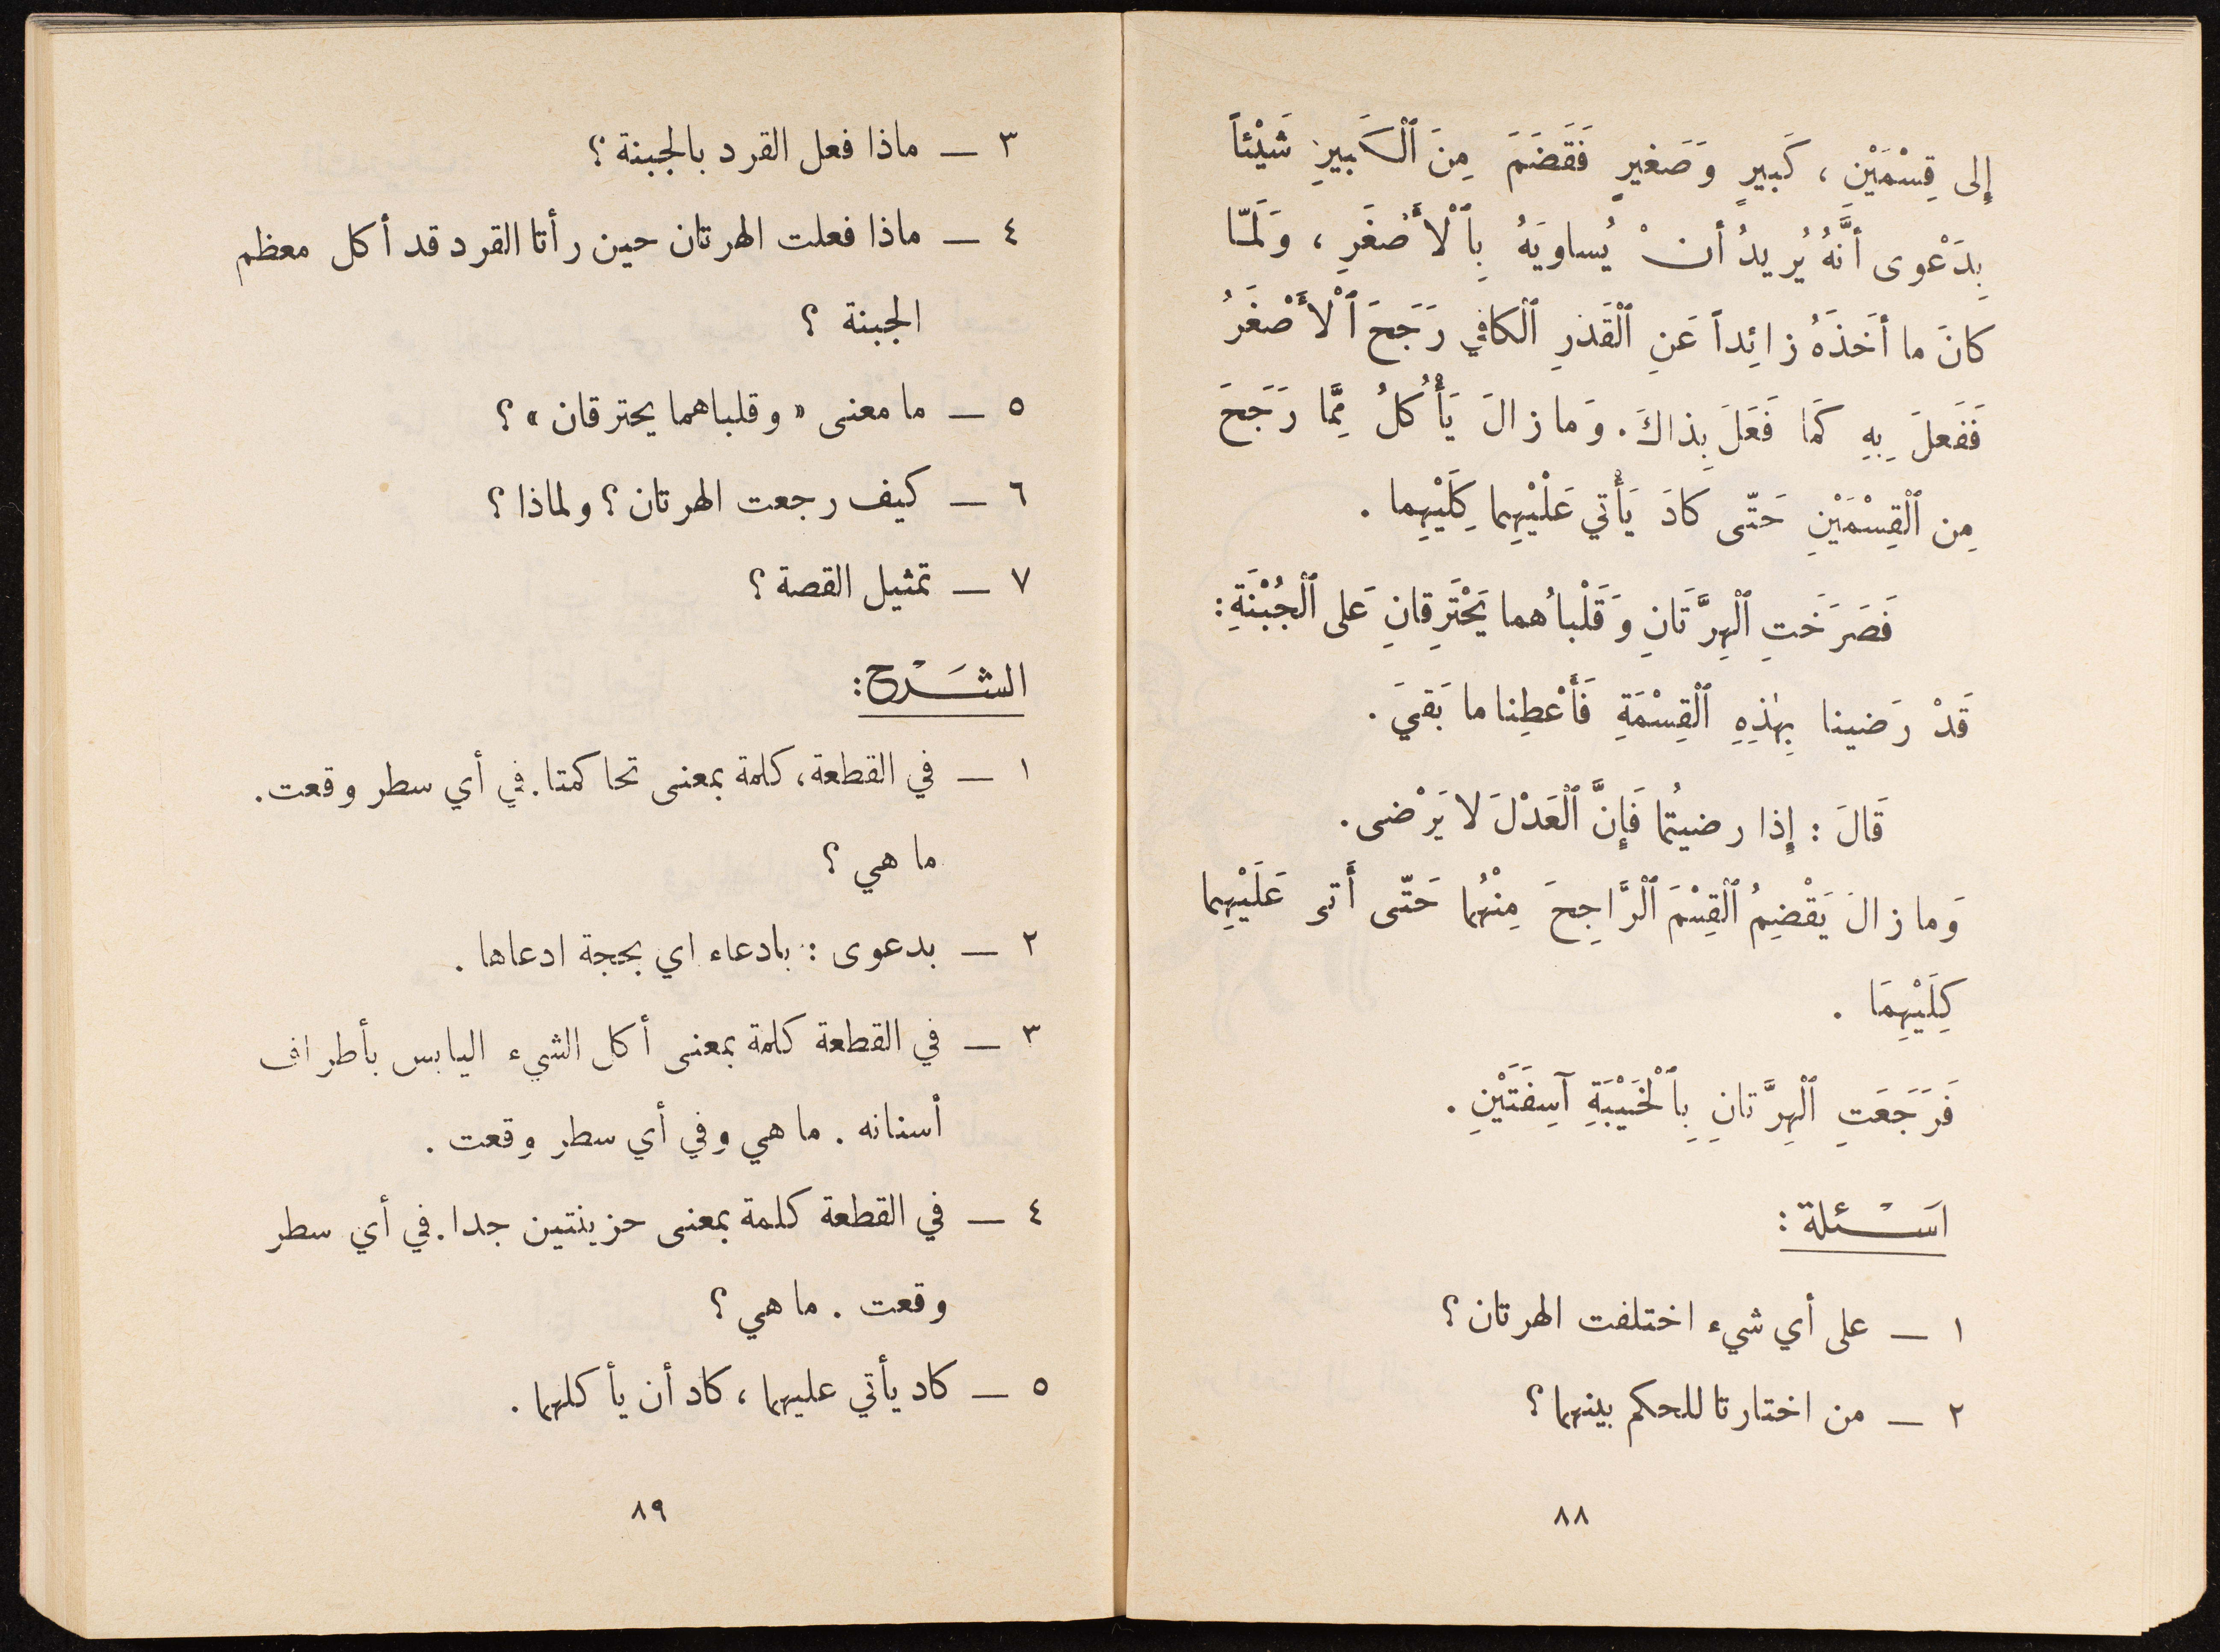 إِلى قِسْمَيْنِ ، كَبيرٍ وَصَغيرٍ فَقَضَمَ مِنَ ٱلْكَبيرِ شَيْئاً
بِدَعْوى أَنَّهُ يُريدُ أَنْ يُساوِيَهُ بِٱلْأَصْغَرِ ، وَلَمّا
كانَ ما أَخَذَهُ زائِداً عَنِ ٱلْقَدْرِ ٱلْكافي رَجَحَ ٱلْأَصْغَرُ
فَفَعَلَ بِهِ كَما فَعَلَ بِذاكَ . وَما زالَ يَأْكُلُ مِمَّا رَجَحَ
مِن ٱلْقِسْمَيْنِ حَتّى كادَ يَأْتي عَلَيْهِما كِلَيْهِما .
فَصَرَخَتِ ٱلْهِرَّتَانِ وَقَلْباهُما يَحْتَرِقانِ عَلى ٱلْجُبْنَةِ :
قَدْ رَضينا بِهٰذِهِ ٱلْقِسْمَةِ فَأَعْطِنا ما بَقيَ .
قَالَ : إِذا رضيتُما فَإِنَّ ٱلْعَدْلَ لا يَرْضى .
وَما زالَ يَقْضِمُ ٱلْقِسْمَ ٱلرَّاجِحَ مِنْهُما حَتّى أَتى عَلَيْهِما
كِلَيْهِمَا .
فَرَجَعَتِ ٱلْهِرَّتانِ بِٱلْخَيْبَةِ آسِفَتَيْنِ .
اسْئلة :
١ — على أي شيء اختلفت الهرتان ؟
٢ — من اختارتا للحكم بينهما ؟
٨٨
٣ — ماذا فعل القرد بالجبنة ؟
٤ — ماذا فعلت الهرتان حين رأتا القرد قد أكل معظم
الجبنة ؟
٥ — ما معنى « وقلباهما يحترقان » ؟
٦ — كيف رجعت الهرتان ؟ ولماذا ؟
٧ — تمثيل القصة ؟
الشَرْح :
١ — في القطعة ، كلمة بمعنى تحاكمتا . في أي سطر وقعت .
ما هي ؟
٢ — بدعوى : بادعاء اي بحجة ادعاها .
٣ — في القطعة كلمة بمعنى أكل الشيء اليابس بأطراف
أسنانه . ما هي وفي أي سطر وقعت .
٤ — في القطعة كلمة بمعنى حزينتين جدا . في أي سطر
وقعت . ما هي ؟
٥ — كاد يأتي عليهما ، كاد أن يأكلهما .
٨٩